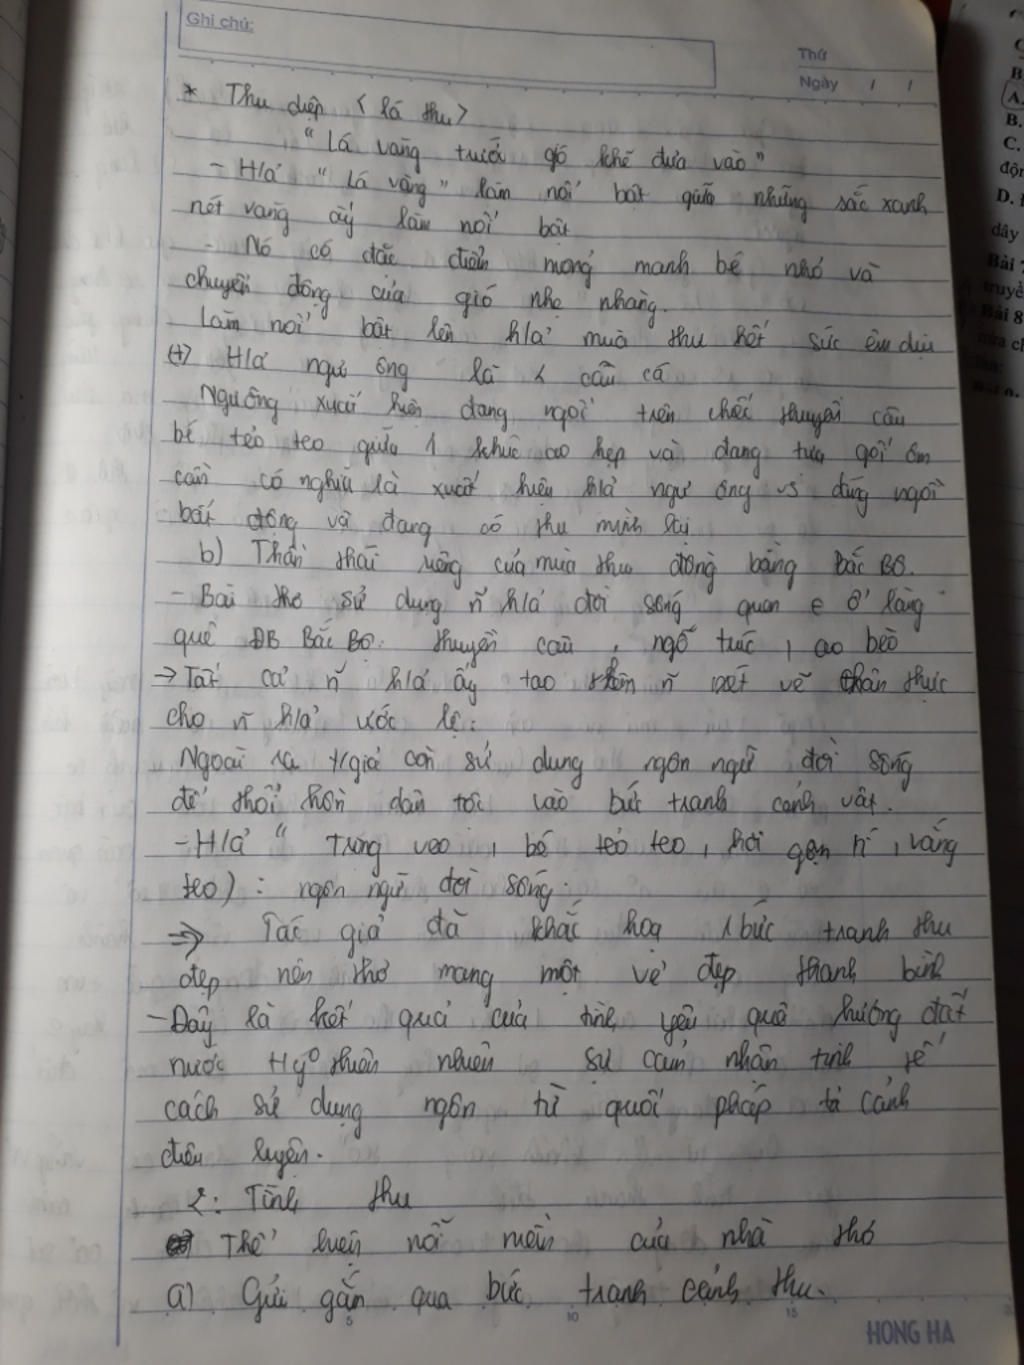 Ghi chú:
Thứ
Ngày / /
* Thu diệp < lá thu >
"Lá vàng trước gió khẽ đưa vào"
- H/ả "Lá vàng" làm nổi bật giữa những sắc xanh
nét vàng ấy làm nổi bật
- Nó có đặc điểm mong manh bé nhỏ và
chuyển động của gió nhẹ nhàng.
Làm nổi bật lên h/ả mùa thu hết sức êm dịu
(+) H/ả ngư ông là câu cá
Ngư ông xuất hiện đang ngồi trên chiếc thuyền câu
bé tẻo teo giữa 1 khúc ao hẹp và đang tựa gối ôm
cần có nghĩa là xuất hiện h/ả ngư ông vs dáng ngồi
bất động và đang có thu mình lại
b) Thần thái riêng của mùa thu đồng bằng Bắc Bộ.
- Bài thơ sử dụng n~ h/ả đời sống quen e ở làng
quê ĐB Bắc Bộ: thuyền câu, ngõ trúc, ao bèo
→ Tất cả n~ h/ả ấy tạo thêm n~ nét vẽ chân thực
cho n~ h/ả ước lệ:
Ngoài ra t/giả còn sử dụng ngôn ngữ đời sống
để thổi hồn dân tộc vào bức tranh cảnh vật.
- H/ả " trong veo, bé tẻo teo, hơi gợn tí, vắng
teo): ngôn ngữ đời sống.
=> Tác giả đã khắc hoạ 1 bức tranh thu
đẹp nên thơ mang một vẻ đẹp thanh bình
- Đây là kết quả của tình yêu quê hương đất
nước thuần nhuyễn sự cảm nhận tinh tế
cách sử dụng ngôn từ pháp tả cảnh
điêu luyện.
2: Tình thu
Thể hiện nỗi niềm của nhà thơ
a) Gửi gắm qua bức tranh cảnh thu.
5 10 15
HONG HA
C
B.
A.
B.
C.
độn
D.
dây
Bài 7
truyề
Bài 8